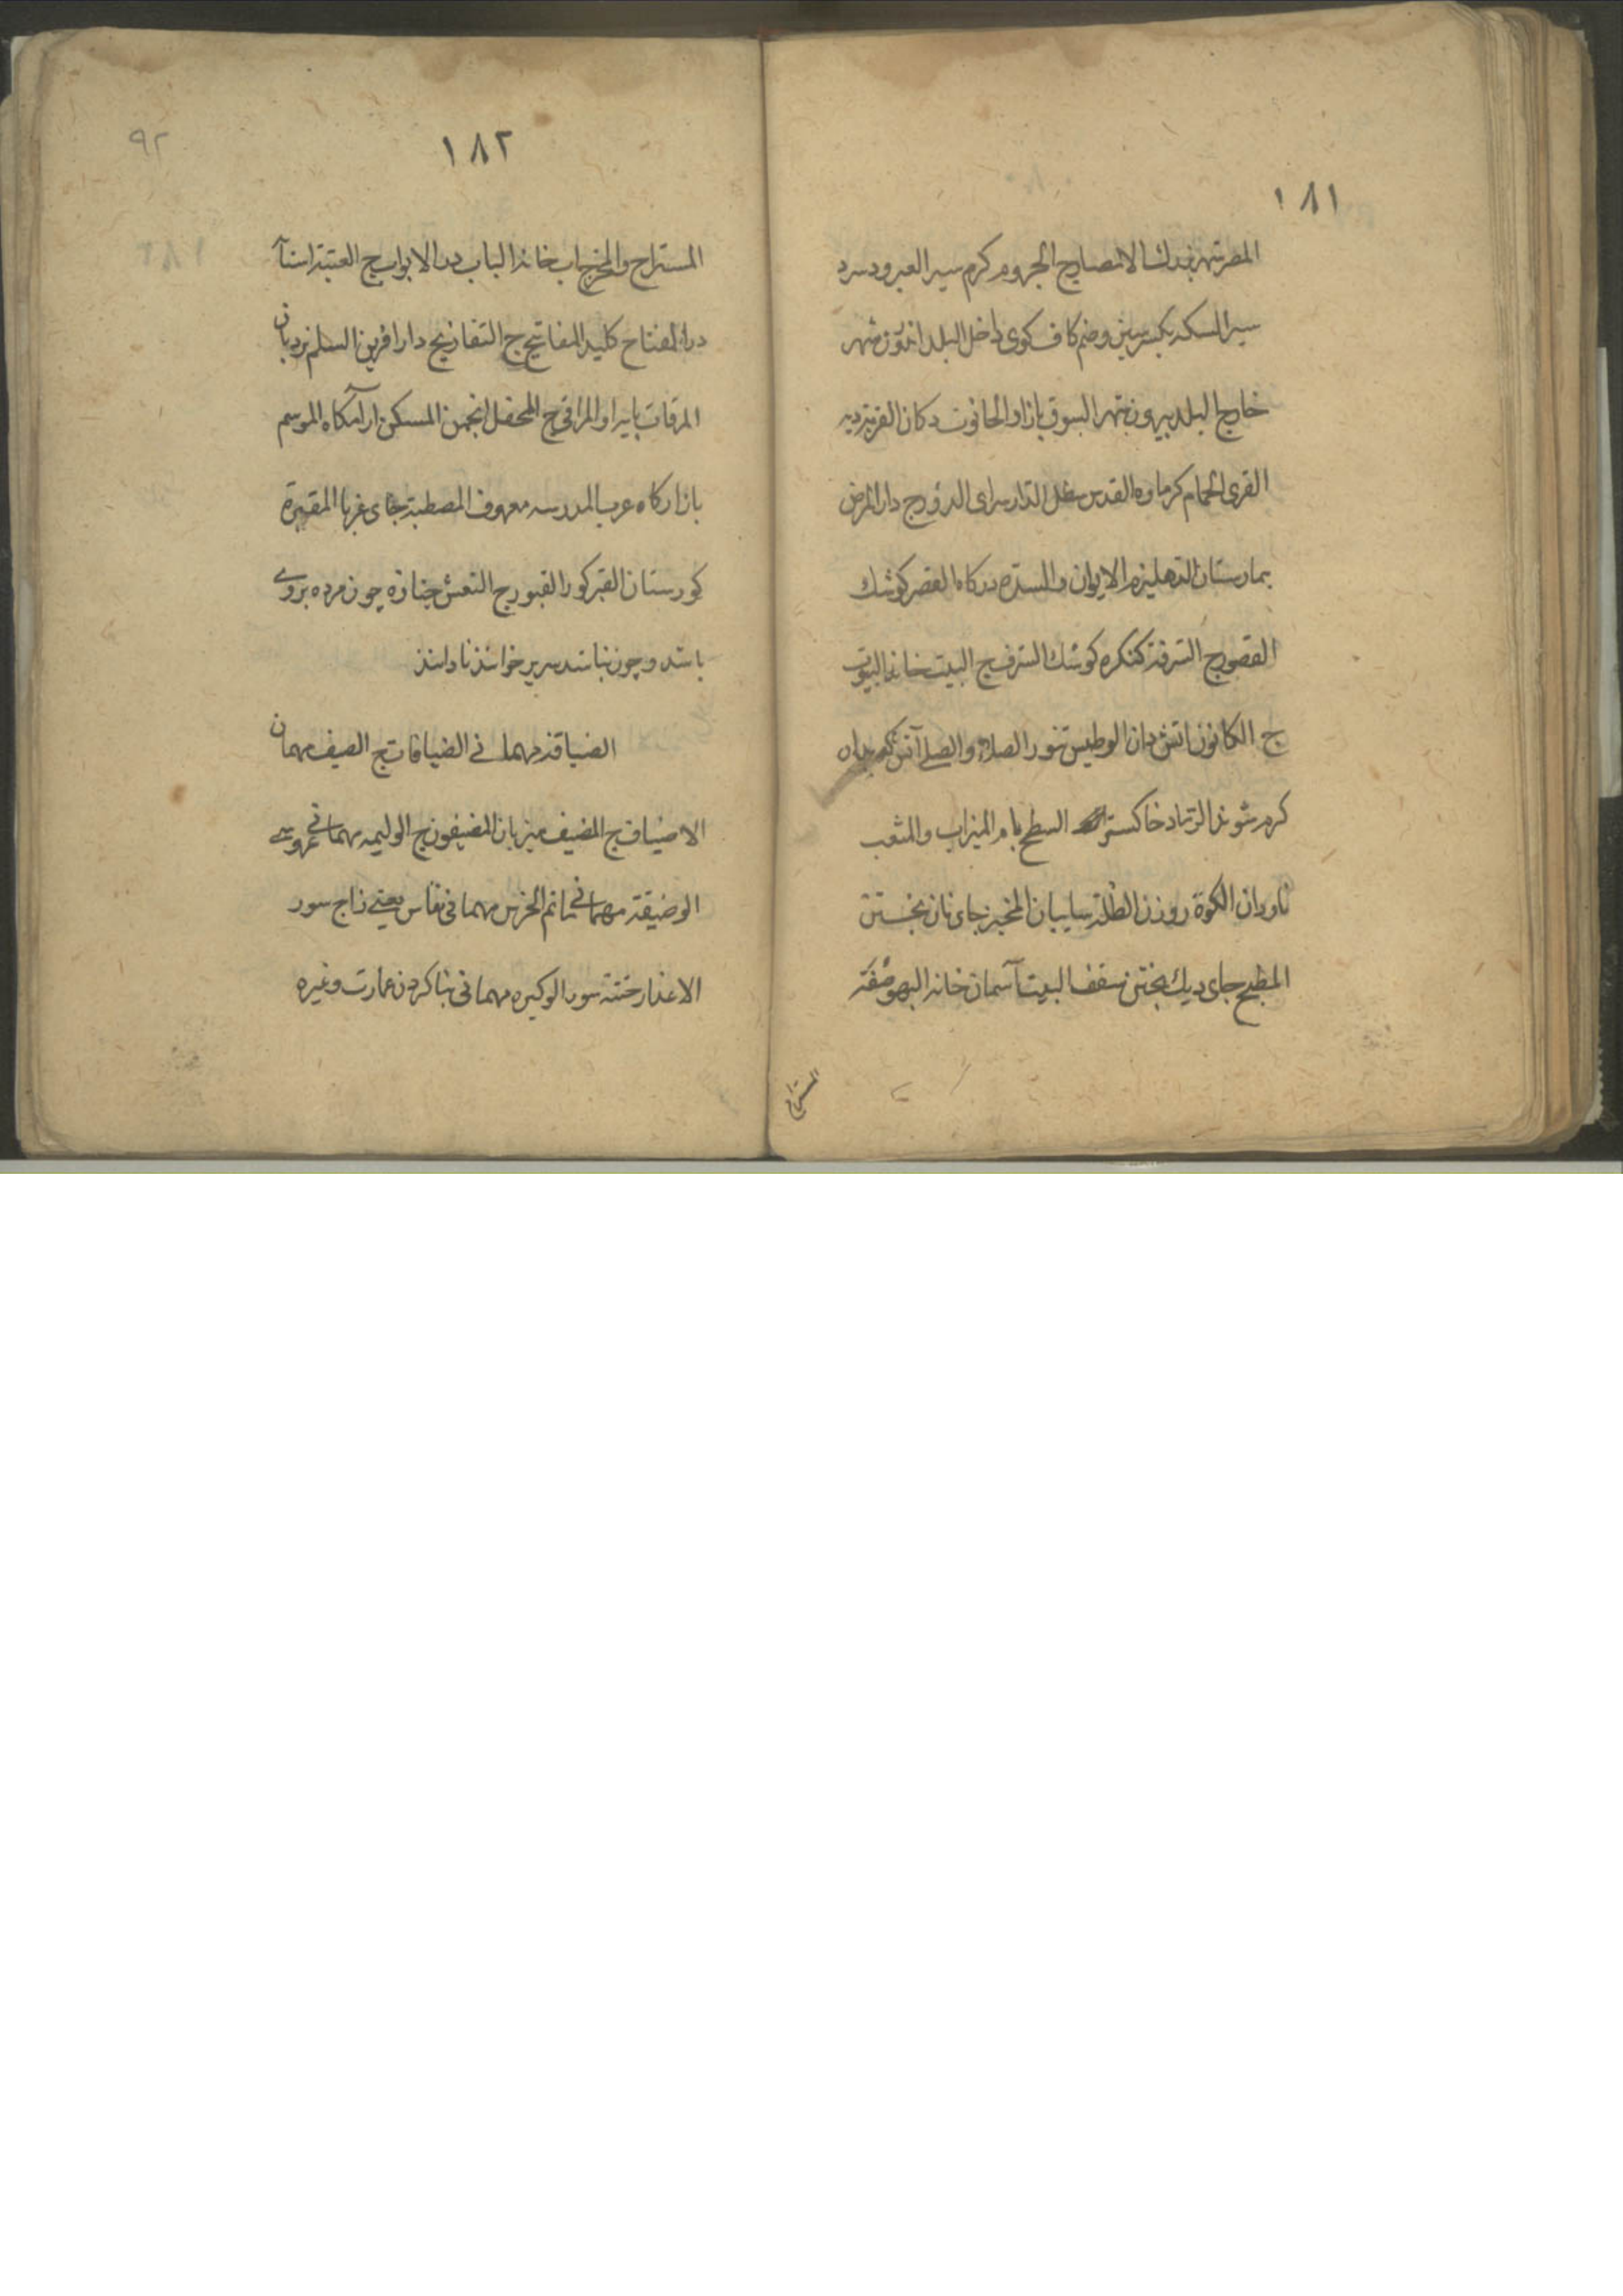 ۱۸۱
المصر شهر بزرك الامصار ج الجروم كرم سير الصرود سرد
سير السكه بكسر سين وضم كاف كوى داخل البلد اندرون شهر
خارج البلد بيرون شهر السوق بازار الحانوت دكان القرية ديه
القرى ج الحمام كرماوه القدس مثل الدار سراى الدور ج دار المرض
بمارستان الدهليز الايوان والسده دركاه القصر كوشك
القصور ج الشرفة كنكره كوشك الشرف ج البيت خانه البيوت
ج الكانون اتش دان الوطيس تنور الصلاء والصلى آتش كه بدان
كرم شوند الرماد خاكستر السطح بام الميزاب والمثعب
ناودان الكوة روزن الظلة سايبان المخبز جاى نان بختن
المطبخ جاى ديك بختن سقف البيت آسمان خانه البهو صفه
المستراح
۱۸۲
۹۲
المستراح والمخرج اب خانه الباب در الابواب ج العتبة استا
در المفتاح كليد المفاتيح ج التفاريج دار افزين السلم نردبان
المرقات بايه او المراقى ج المحفل انجمن المسكن ارامكاه الموسم
بازاركاه عرب المدرسه معروف المصطبة جاى غربا المقبرة
كورستان القبر كور القبور ج النعش جنازه چون مرده بروى
باشد و چون نباشد سرير خوانند نا دانند
الضيافة مهمانى الضيافات ج الضيف مهمان
الاضياف ج المضيف ميزبان المضيفون ج الوليمه مهمانى عروسى
الوضيقة مهمانى ماتم الخرس مهمانى نفاس يعنى زاج سور
الاعذار ختنه سور الوكيره مهمانى بنا كردن عمارت وغيره